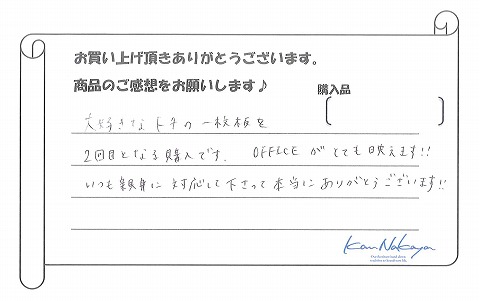 お買い上げ頂きありがとうございます。
商品のご感想をお願いします♪
購入品
大好きなトチの一枚板を
2回目となる購入です. OFFICEがとても映えます!!
いつも親身に対応して下さって本当にありがとうございます!!
Kan Nakaya